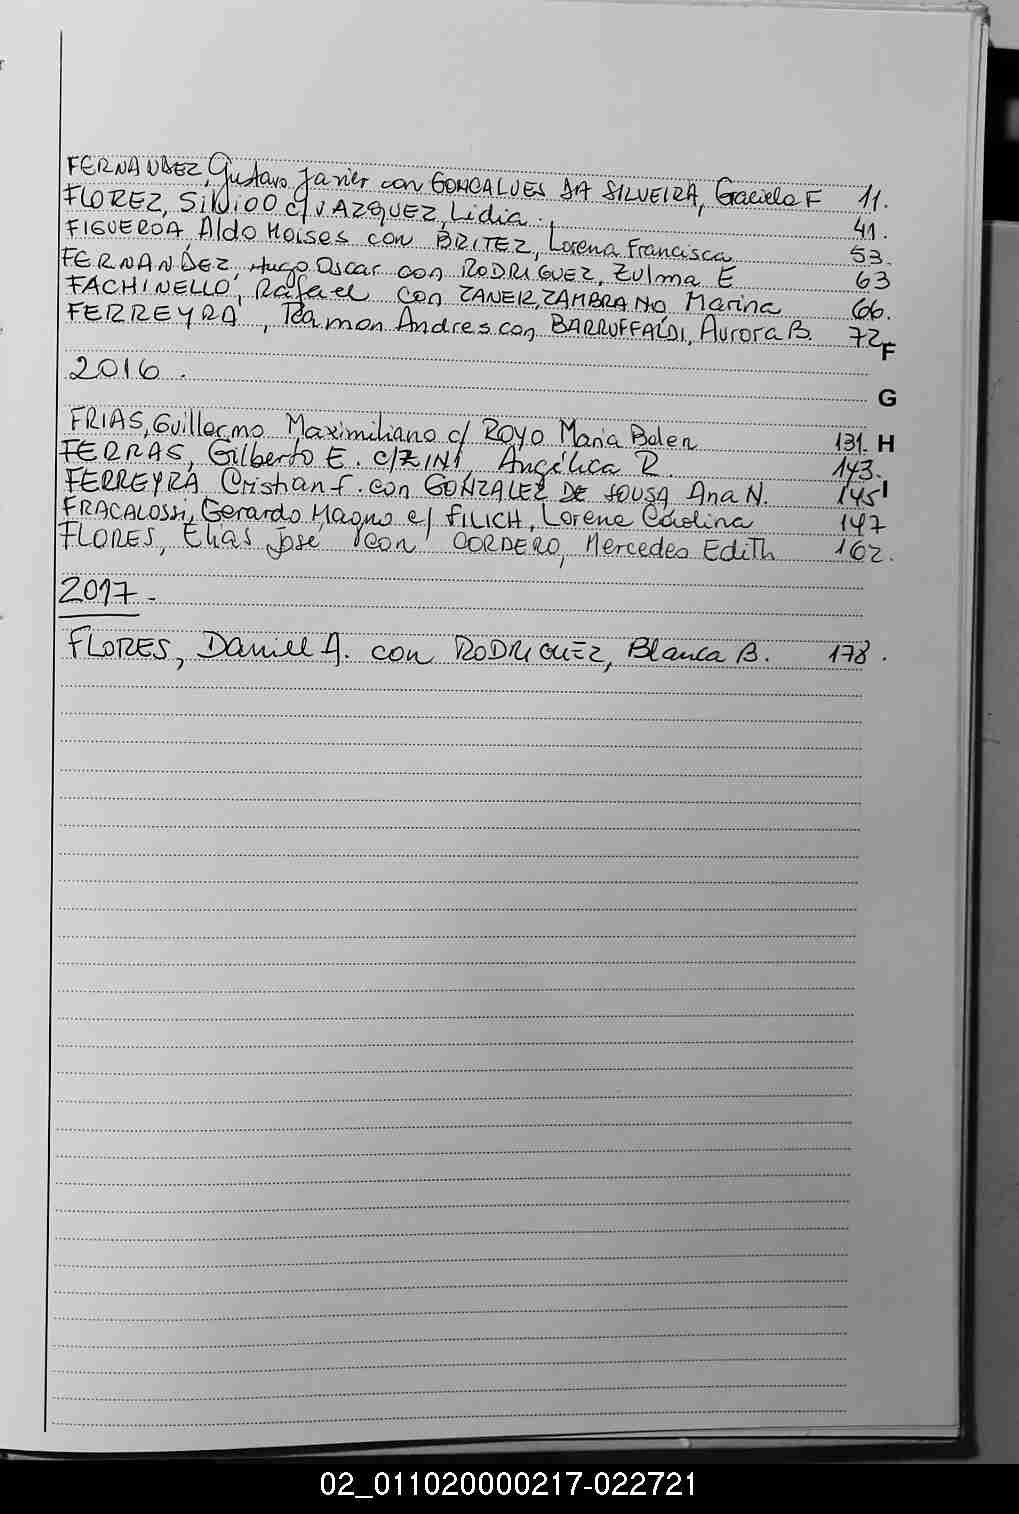 FERNANDEZ, Gustavo Javier con GONCALUES DA SILVEIRA, Graciela F 11.
FLOREZ, Silvioo c/ VAZQUEZ, Lidia. 41.
FIGUEROA, Aldo Moises con BRITEZ, Lorena Francisca 53.
FERNANDEZ, Hugo Oscar con RODRIGUEZ, Zulma E 63
FACHINELLO, Rafael con ZANEIR, ZAMBRANO Marina 66.
FERREYRA, Ramon Andres con BARRUFFALDI, Aurora B. 72
F
2016.
G
FRIAS, Guillermo Maximiliano c/ ROYO Maria Belen 131.
H
FERRAS, Gilberto E. c/ZINI, Angélica R. 143.
FERREYRA Cristian F. con GONZALEZ DE SOUSA Ana N. 145
I
FRACALOSSI, Gerardo Magno c/ FILICH, Lorena Carolina 147
FLORES, Elias Jose con CORDERO, Mercedes Edith 162.
2017.-
FLORES, Daniel A. con RODRIGUEZ, Blanca B. 178.
02_011020000217-022721